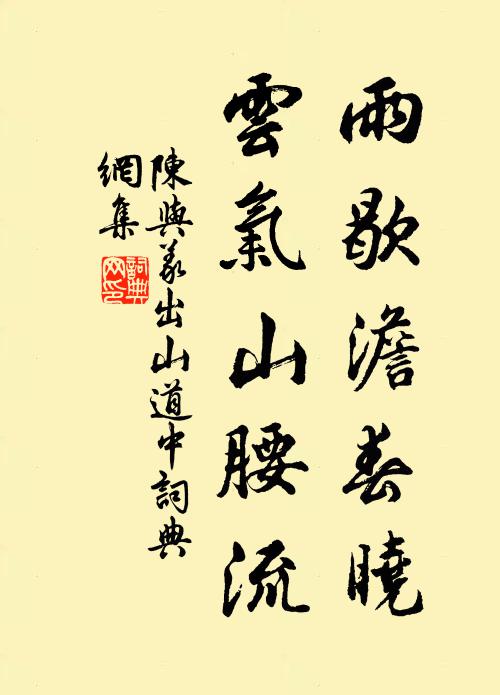 雨歇澹春曉
雲氣山腰流
陳與義出山道中詞典
網集
詞典
网印